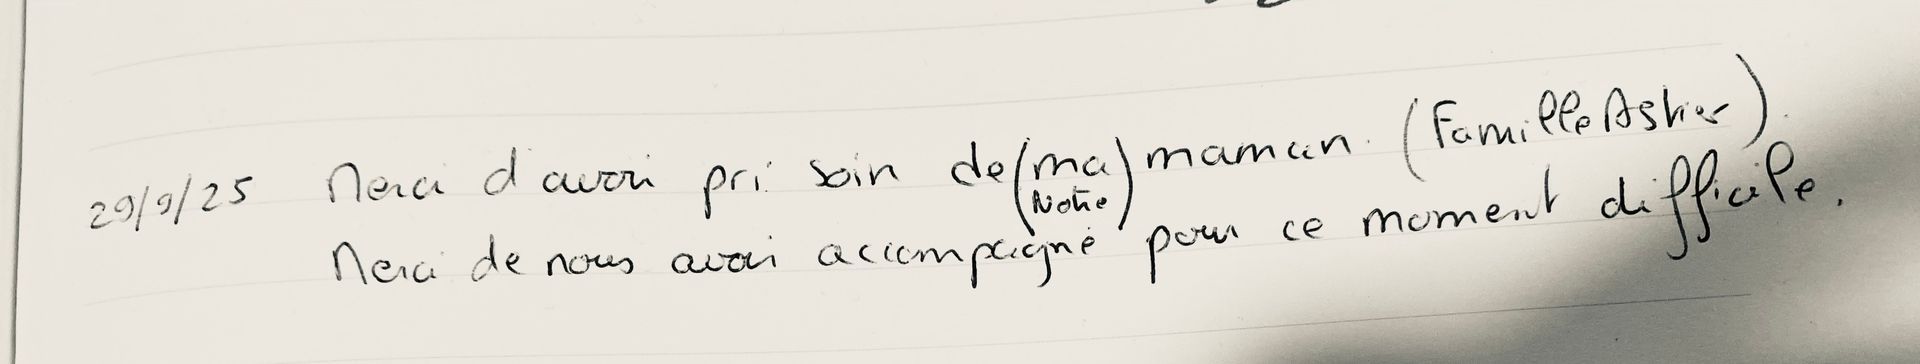 29/9/25 Merci d'avoir pri soin de (ma) maman. (Famille Astier).
(Notre)
Merci de nous avoir accompagné pour ce moment difficile.